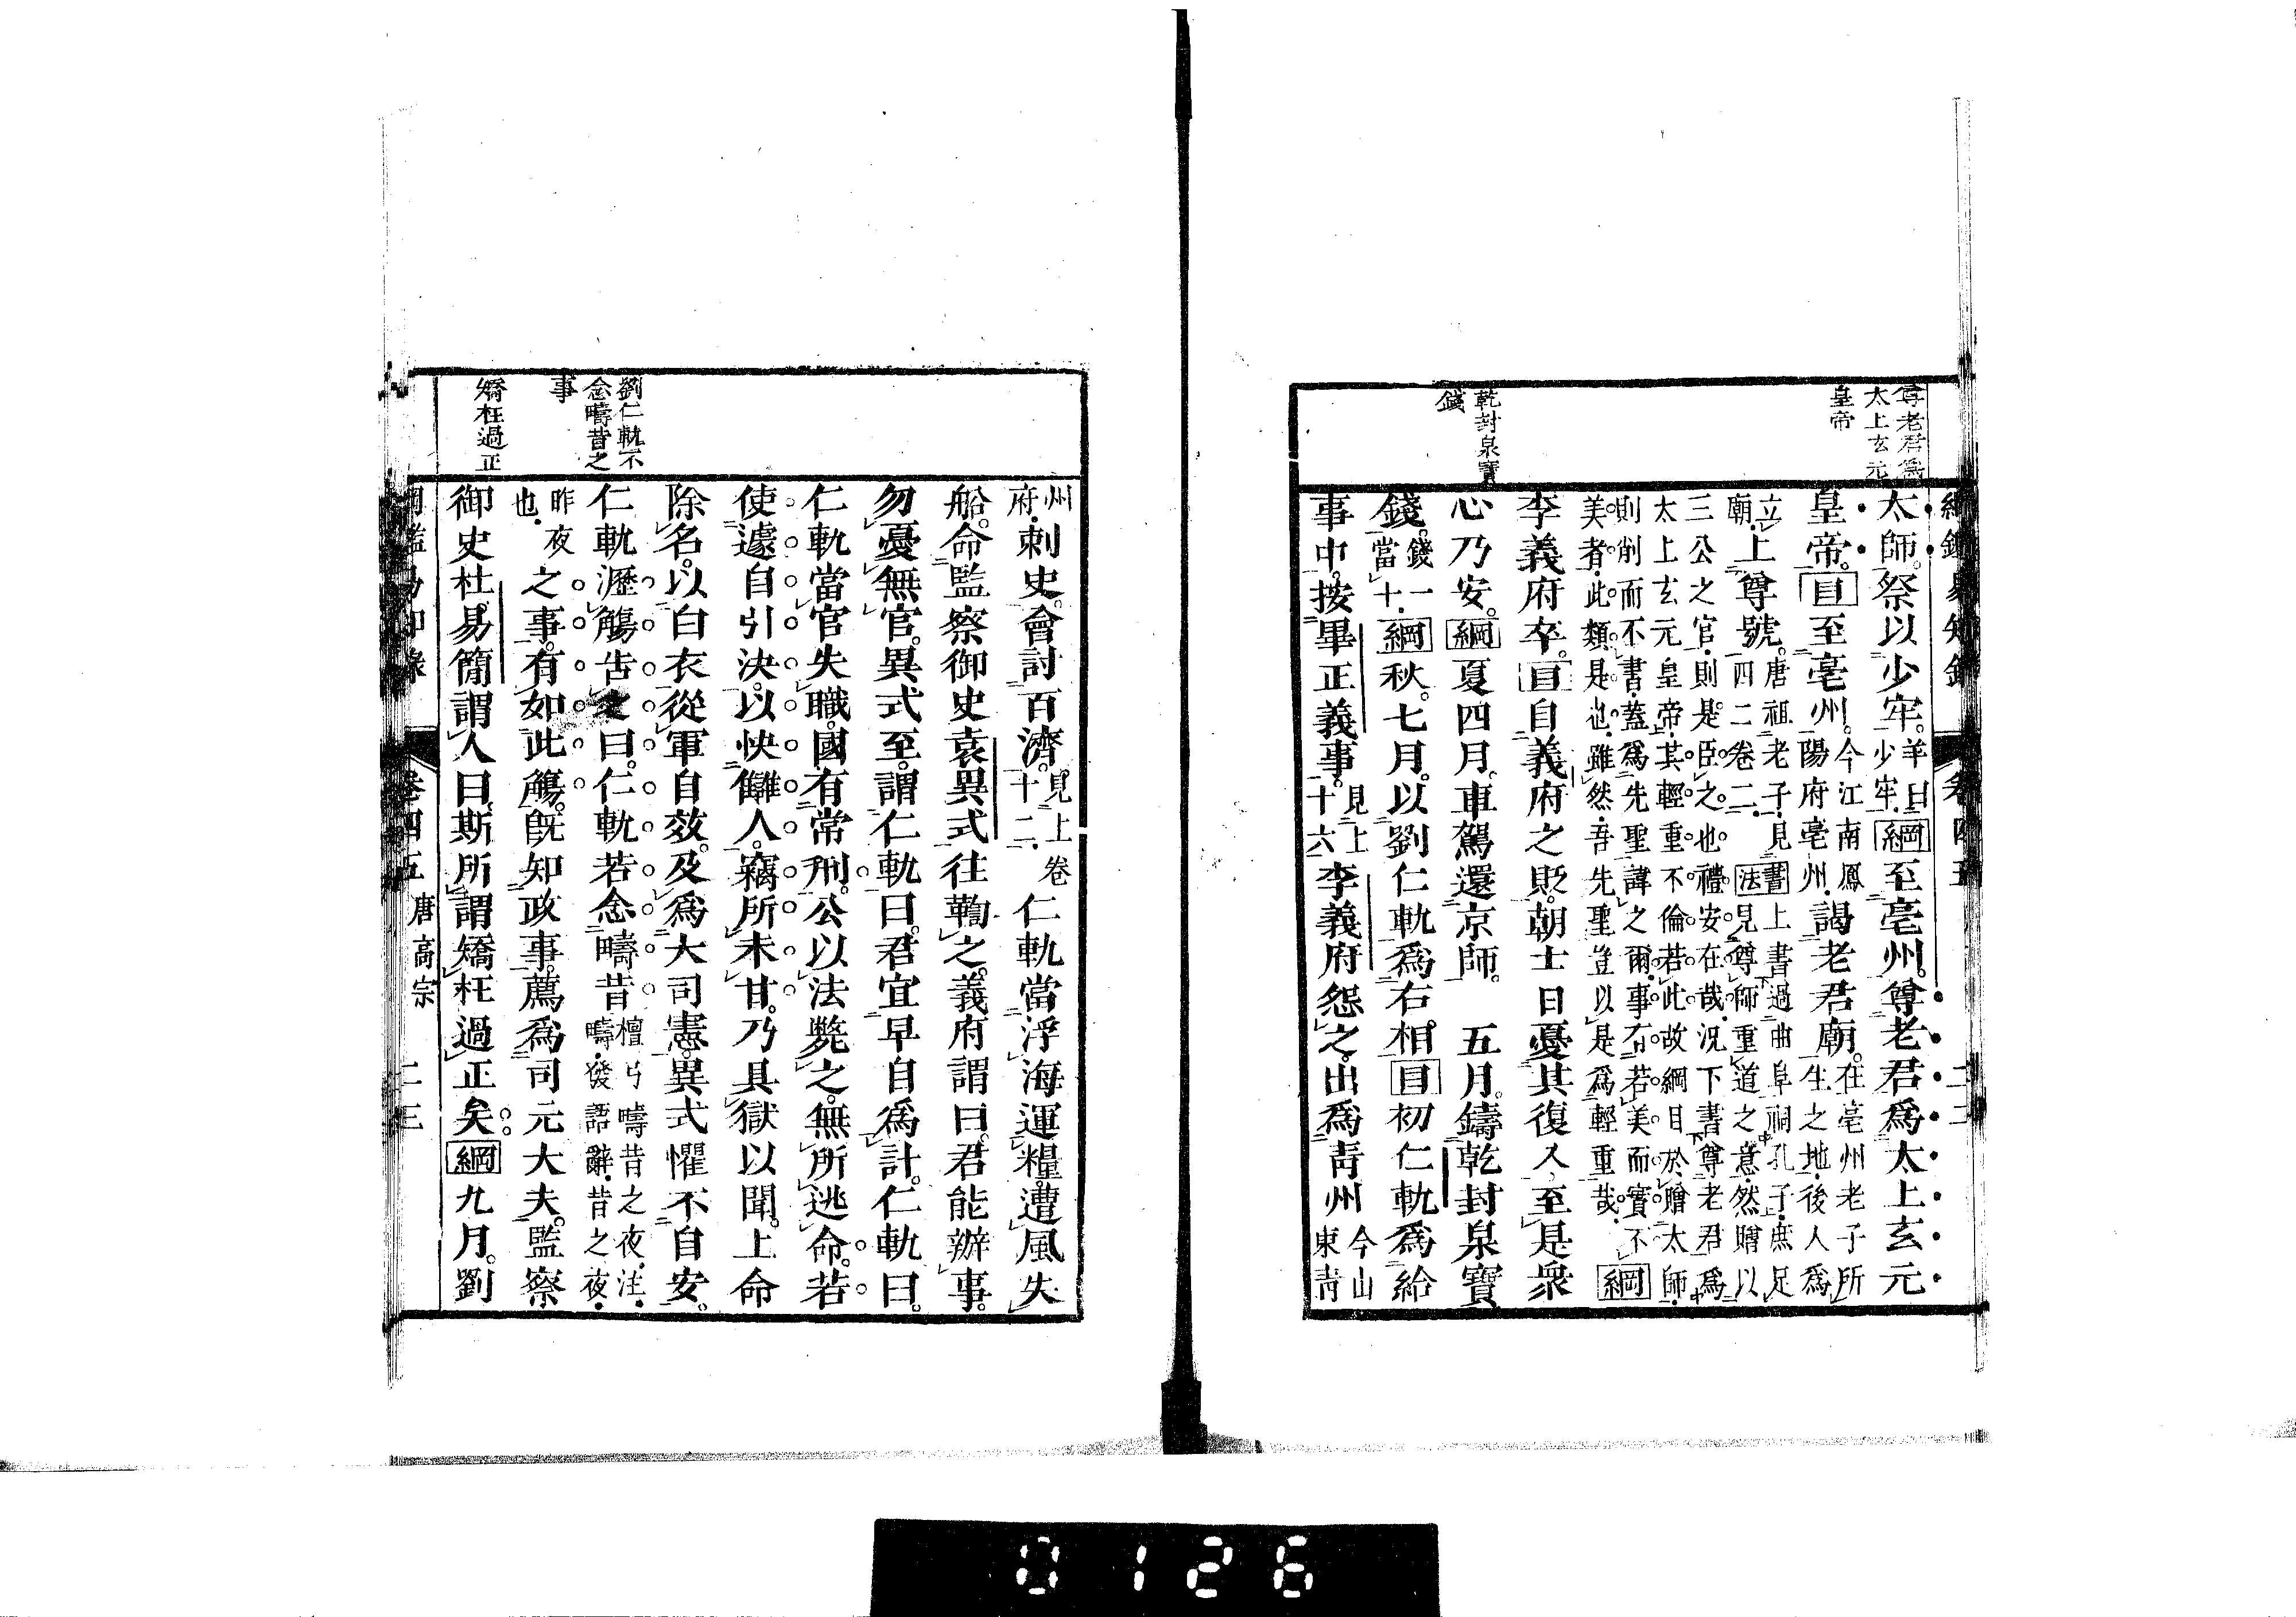 尊老君爲
太上玄元
皇帝
乾封泉寶
錢
太師。祭以少牢。羊曰少牢。綱至亳州。尊老君爲太上玄元
皇帝。目至亳州。今江南鳳陽府亳州。謁老君廟。在亳州老子所生之地。後人爲
立廟。上尊號。唐祖老子、見四二卷二。書法上書過曲阜祠孔子、庶足見尊師重道之意、然贈以
三公之官、則是臣之也、禮安在哉、況下書尊老君爲
太上玄元皇帝、其輕重不倫若此、故綱目於贈太師、
則削而不書、蓋爲先聖諱之爾、事有若美而實不
美者、此類是也、雖然、吾先聖豈以是爲輕重哉、綱
李義府卒。目自義府之貶。朝士日憂其復入。至是衆
心乃安。綱夏四月。車駕還京師。　五月。鑄乾封泉寶
錢。錢一當十。綱秋。七月。以劉仁軌爲右相。目初仁軌爲給
事中。按畢正義事。見上十六李義府怨之。出爲青州今山東青
劉仁軌不
念疇昔之
事
矯枉過正
州府。刺史。會討百濟。見上卷十二。仁軌當浮海運糧。遭風失
船。命監察御史袁異式往鞫之。義府謂曰。君能辦事。
勿憂無官。異式至。謂仁軌曰。君宜早自爲計。仁軌曰。
仁軌當官失職。國有常刑。公以法斃之。無所逃命。若
使遽自引決。以快讎人。竊所未甘。乃具獄以聞。上命
除名。以白衣從軍自效。及爲大司憲。異式懼不自安。
仁軌瀝觴告之曰。仁軌若念疇昔檀弓疇昔之夜、注、疇、發語辭、昔之夜、
昨夜也、之事。有如此觴。旣知政事。薦爲司元大夫。監察
御史杜易簡謂人曰。斯所謂矯枉過正矣。綱九月。劉
卷四五　唐高宗　二三
0126